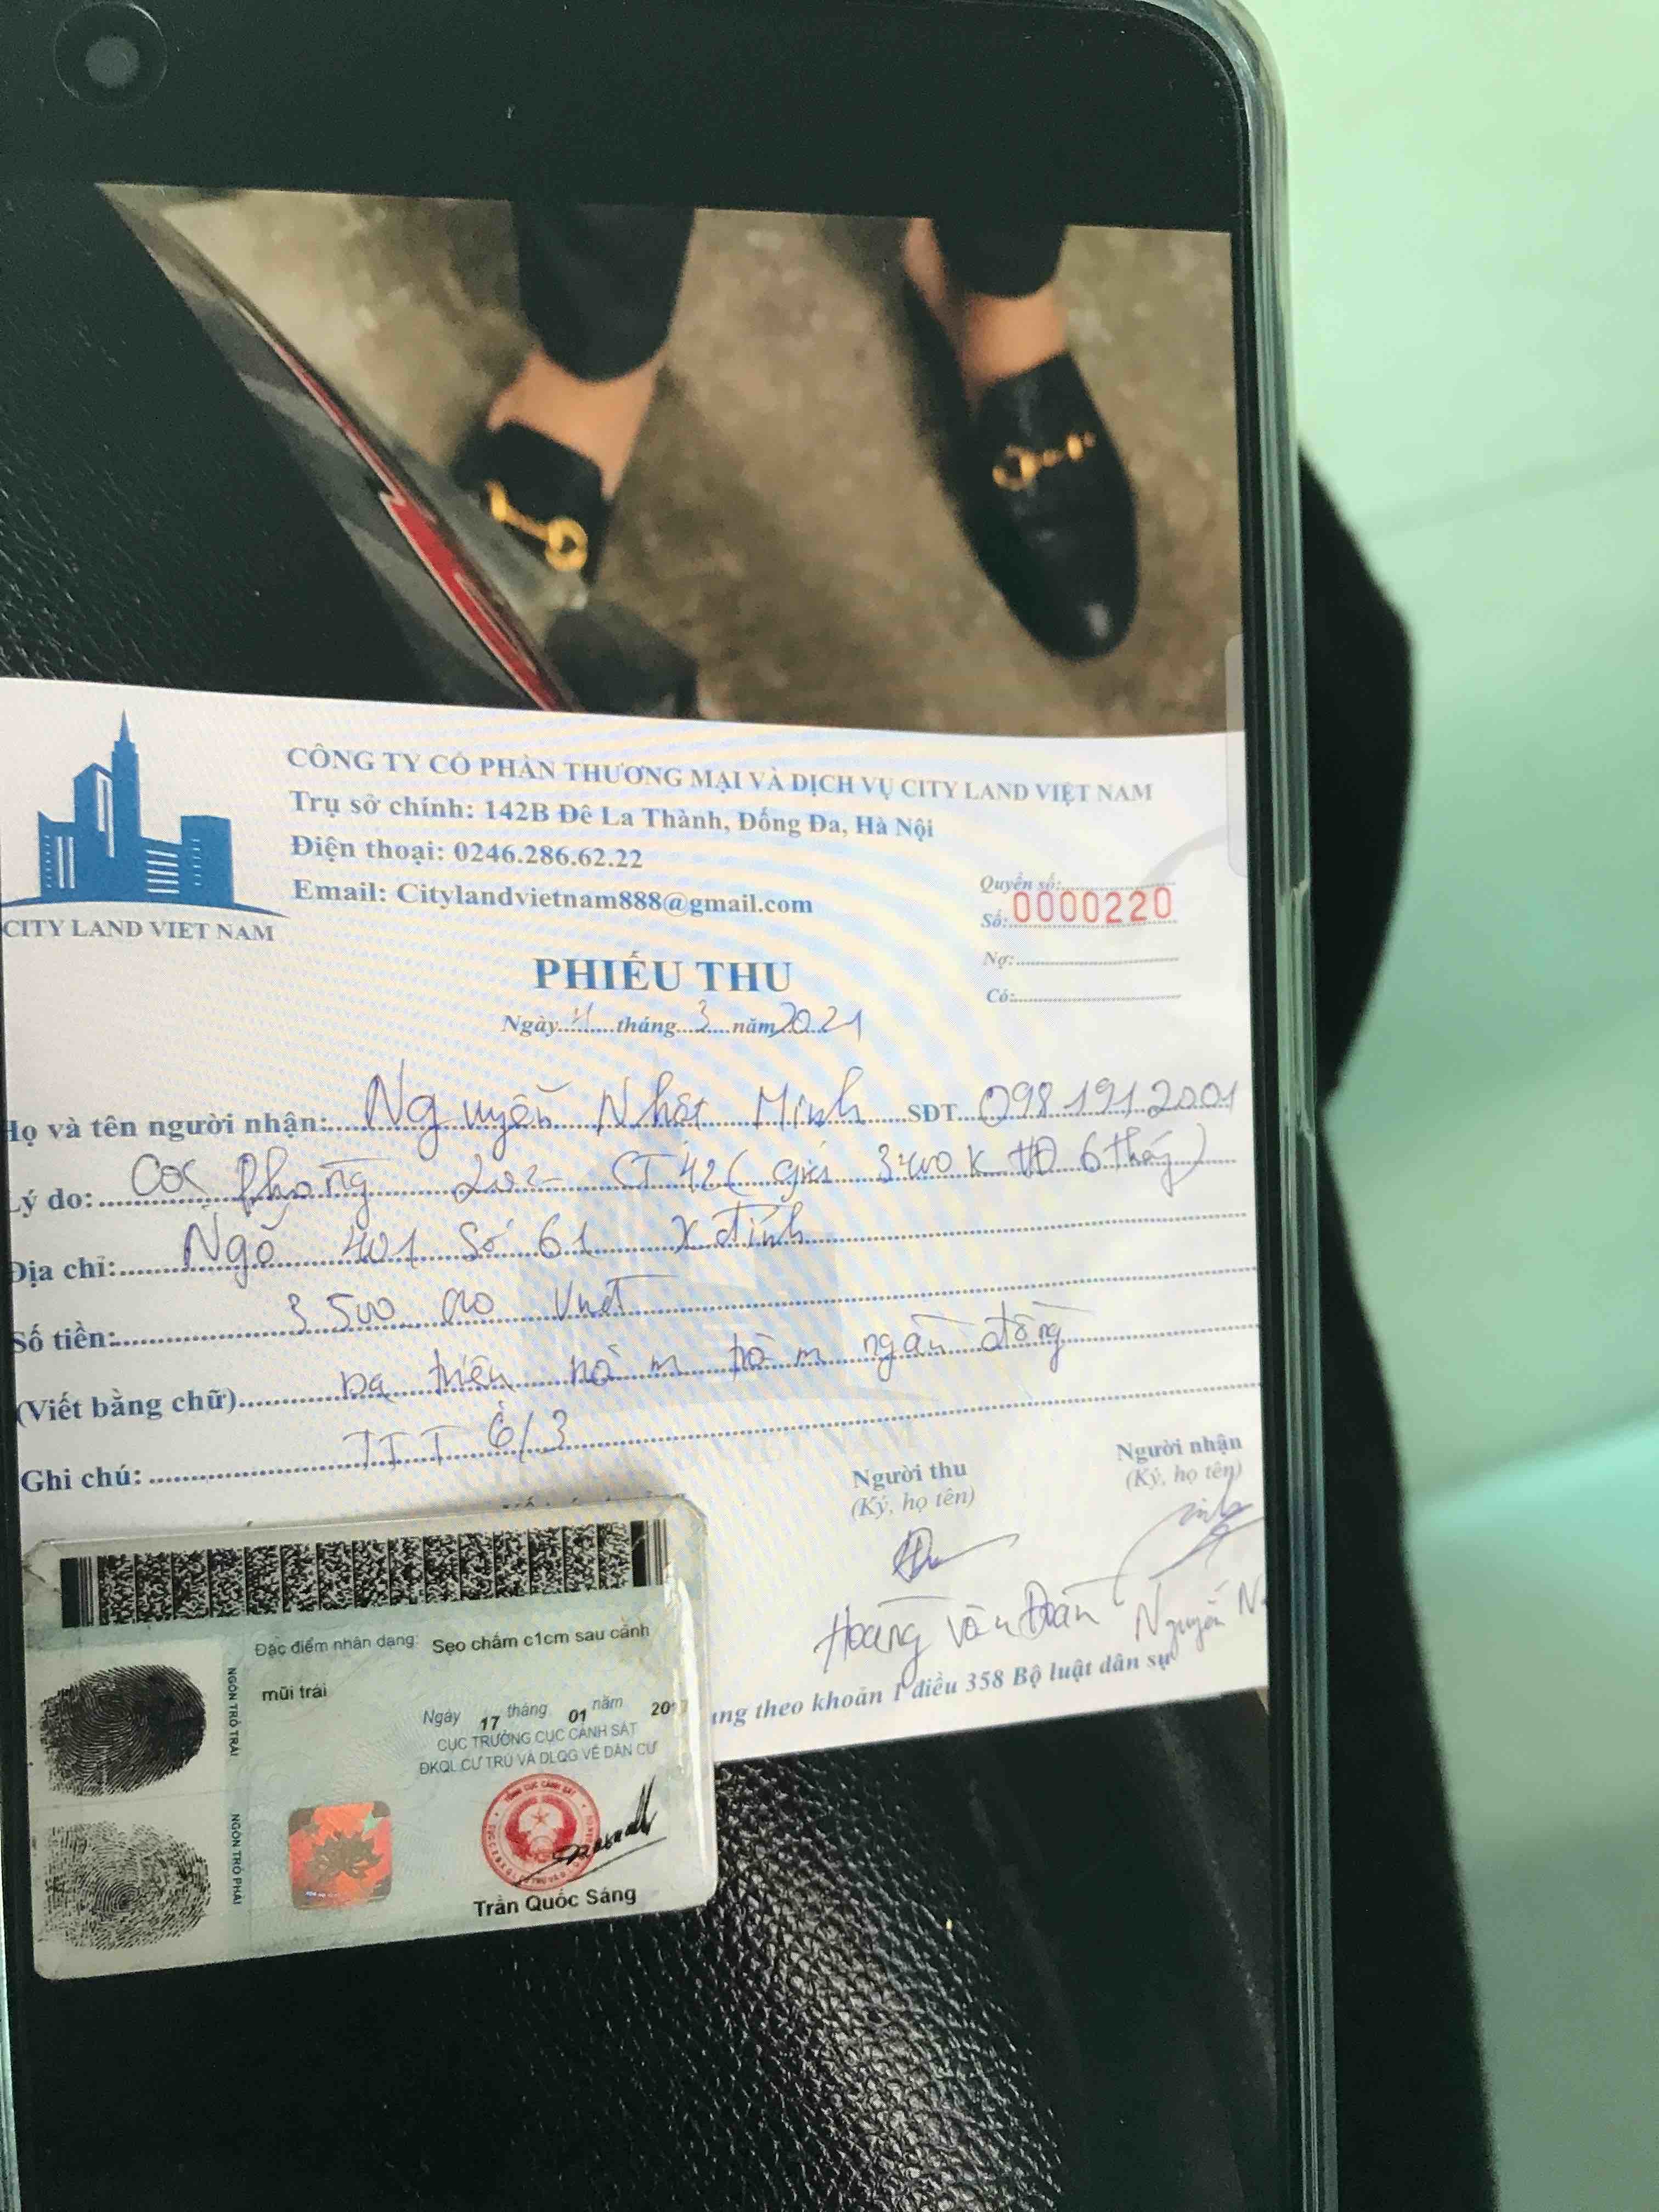 CÔNG TY CỔ PHẦN THƯƠNG MẠI VÀ DỊCH VỤ CITY LAND VIỆT NAM
Trụ sở chính: 142B Đê La Thành, Đống Đa, Hà Nội
Điện thoại: 0246.286.62.22
Email: Citylandvietnam888@gmail.com
CITY LAND VIET NAM
Quyển số:
Số: 0000220
Nợ:
Có:
PHIẾU THU
Ngày 4 tháng 3 năm 2021
Họ và tên người nhận: Nguyễn Nhật Minh SĐT 0981912001
Lý do: Cọc phòng 202 - CT 42 ( giá 3400k HĐ 6 tháng )
Địa chỉ: Ngõ 401 Số 61 X đỉnh
Số tiền: 3 500 000 Vnđ
(Viết bằng chữ) Ba triệu năm trăm ngàn đồng
Ghi chú: TTT 6/3
Người thu
(Ký, họ tên)
Người nhận
(Ký, họ tên)
Hoàng Văn Đoàn
Nguyễn N
ụng theo khoản 1 điều 358 Bộ luật dân sự
Đặc điểm nhân dạng: Sẹo chấm c1cm sau cánh
mũi trái
Ngày 17 tháng 01 năm 201
CỤC TRƯỞNG CỤC CẢNH SÁT
ĐKQL CƯ TRÚ VÀ DLQG VỀ DÂN CƯ
NGÓN TRỎ TRÁI
NGÓN TRỎ PHẢI
Trần Quốc Sáng